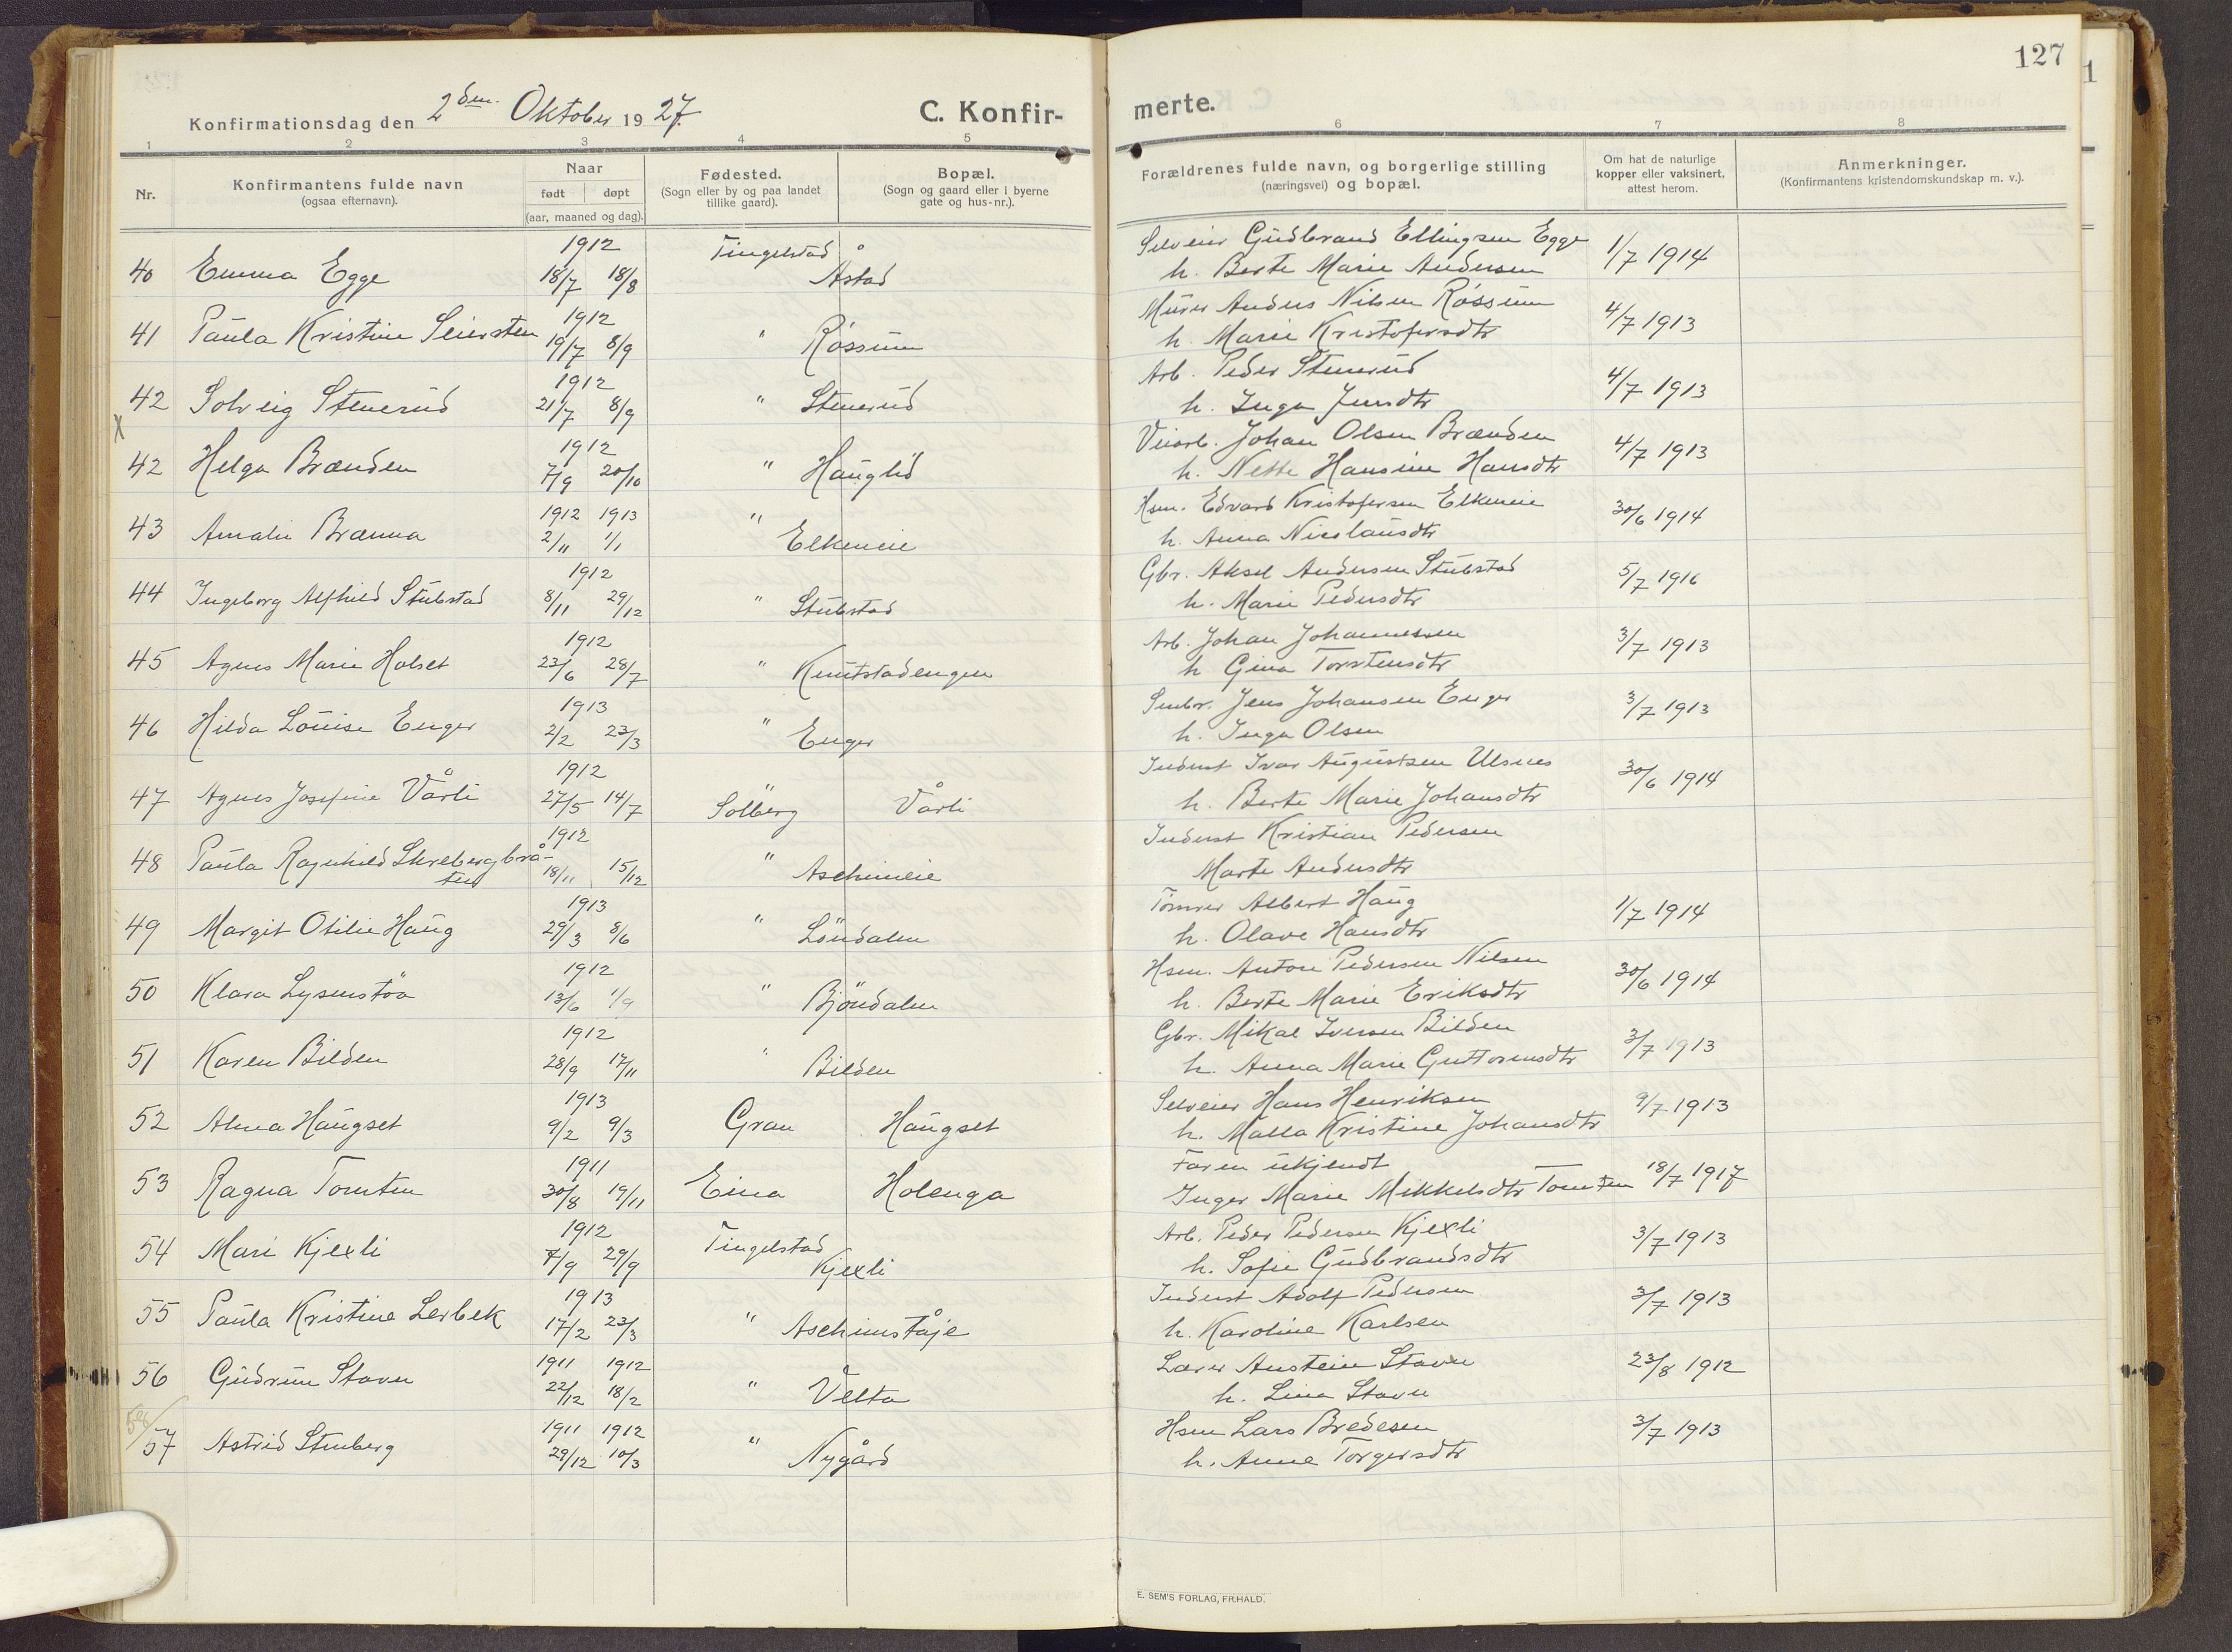 127
1
Konfirmationsdag den 2den Oktober 1927.
C. Konfir-
merte.
1 2 3 4 5 6 7 8
Nr.
Konfirmantens fulde navn
(ogsaa efternavn).
Naar
født døpt
(aar, maaned og dag).
Fødested.
(Sogn eller by og paa landet
tillike gaard).
Bopæl.
(Sogn og gaard eller i byerne
gate og hus-nr.).
Forældrenes fulde navn, og borgerlige stilling
(næringsvei) og bopæl.
Om hat de naturlige
kopper eller vaksinert,
attest herom.
Anmerkninger.
(Konfirmantens kristendomskundskap m. v.).
1912 Tingelstad Selveier Gudbrand Ellingsen Egge
40 Emma Egge 18/7 18/8 Åstad h. Berte Marie Andersen 1/7 1914
1912 Murer Anders Nilsen Røssum
41 Paula Kristine Seiersten 19/7 8/9 " Røssum h. Marie Kristofersdtr 4/7 1913
1912 Arb. Peder Stenerud
42 Solveig Stenerud 21/7 8/9 " Stenerud h. Inga Jensdtr 4/7 1913
x
1912 Veiarb. Johan Olsen Brænden
42 Helga Brænden 7/9 20/10 " Hauglid h. Nette Hansine Hansdtr 4/7 1913
1912 1913 Hsm. Edvard Kristofersen Elkeneie
43 Amalie Brænna 2/11 1/1 " Elkeneie h. Anna Nicolausdtr 30/6 1914
1912 Gbr. Aksel Andersen Stubstad
44 Ingeborg Alfhild Stubstad 8/11 29/12 " Stubstad h. Marie Pedersdtr 5/7 1916
1912 Arb. Johan Johannessen
45 Agnes Marie Holset 23/6 28/7 " Knutstadengen h. Gina Torstensdtr 3/7 1913
1913 Smbr. Jens Johansen Enger
46 Hilda Louise Enger 2/2 23/3 " Enger h. Inga Olsen 3/7 1913
1912 Inderst Ivar Augustsen Ulsnes
47 Agnes Josefine Vårli 27/5 14/7 Sølberg Vårli h. Berte Marie Johansdtr 30/6 1914
1912 Inderst Kristian Pedersen
48 Paula Ragnhild Skrebergbrå-
ten 18/11 15/12 " Aschimeie Marte Andersdtr
1913 Tømrer Albert Haug
49 Margit Otilie Haug 29/3 8/6 " Løndalen h. Olave Hansdtr 1/7 1914
1912 Hsm. Anton Pedersen Nilsen
50 Klara Lysenstøa 13/6 1/9 " Bjøndalen h. Berte Marie Eriksdtr 30/6 1914
1912 Gbr. Mikal Iversen Bilden
51 Karen Bilden 28/9 17/11 " Bilden h. Anna Marie Guttormsdtr 3/7 1913
1913 Selveier Hans Henriksen
52 Alma Haugset 9/2 9/3 Gran Haugset h. Malla Kristine Johansdtr 9/7 1913
1911 Faren ukjendt
53 Ragna Tomten 30/8 19/11 Eina Holenga Inger Marie Mikkelsdtr Tomten 18/7 1917
1912 Tingelstad Arb. Peder Pedersen Kjexli
54 Mari Kjexli 7/9 29/9 Kjexli h. Sofie Gudbrandsdtr 3/7 1913
1913 Inderst Adolf Pedersen
55 Paula Kristine Lerbek 17/2 23/3 " Aschimståje h. Karoline Karlsen 3/7 1913
1911 1912 Lærer Austein Stavn
56 Gudrun Stavn 22/12 18/2 " Velta h. Lina Stavn 23/8 1912
58/
1911 1912 Hsm Lars Bredesen
57 Astrid Stenberg 29/12 10/3 " Nygård h. Anne Torgersdtr 3/7 1913
E. SEM'S FORLAG, FR.HALD.